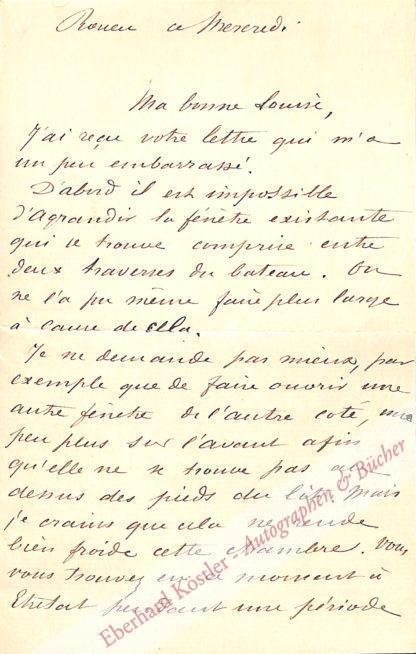 Rouen ce Mercredi
Ma bonne Louise,
J'ai reçu votre lettre qui m'a
un peu embarrassé.
D'abord il est impossible
d'agrandir la fenêtre existante
qui se trouve comprise entre
deux traverses du bateau. On
ne l'a pu même faire plus large
à cause de cela.
Je ne demande pas mieux, par
exemple que de faire ouvrir une
autre fenêtre de l'autre coté, un
peu plus sur l'avant afin
qu'elle ne se trouve pas au
dessus des pieds du lit. Mais
je crains que cela ne rende
bien froide cette chambre. Vous
vous trouvez en ce moment à
Etretat pendant une période
Eberhard Köstler - Autographen & Bücher